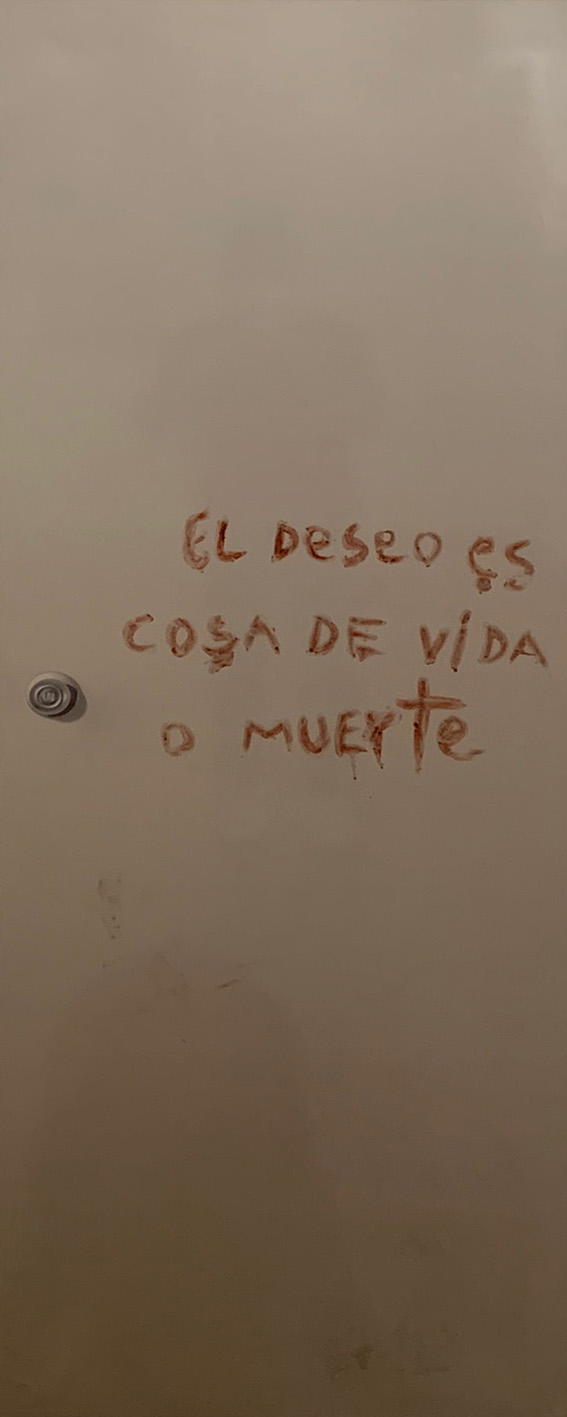 EL DeseO es
COSA DE ViDA
O MUERte